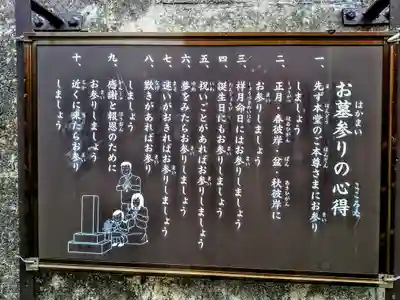 お墓参りの心得
一、先ず本堂のご本尊さまにお参り
しましょう
二、正月・春彼岸・盆・秋彼岸に
お参りしましょう
三、祥月命日にはお参りしましょう
四、誕生日にもお参りしましょう
五、祝いごとがあればお参りしましょう
六、夢をみたらお参りしましょう
七、迷いがおきればお参りしましょう
八、歎きがあればお参り
しましょう
九、感謝と報恩のために
お参りしましょう
十、近くに来たらお参り
しましょう